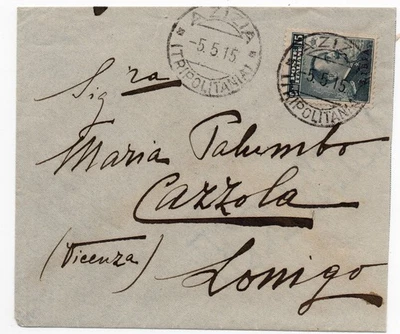 AZIZIA
-5.5.15.
(TRIPOLITANIA)
AZIZIA
-5.5.15.
(TRIPOLITANIA)
15
Sig.ra
Maria Palumbo
Cazzola
(Vicenza) Lonigo